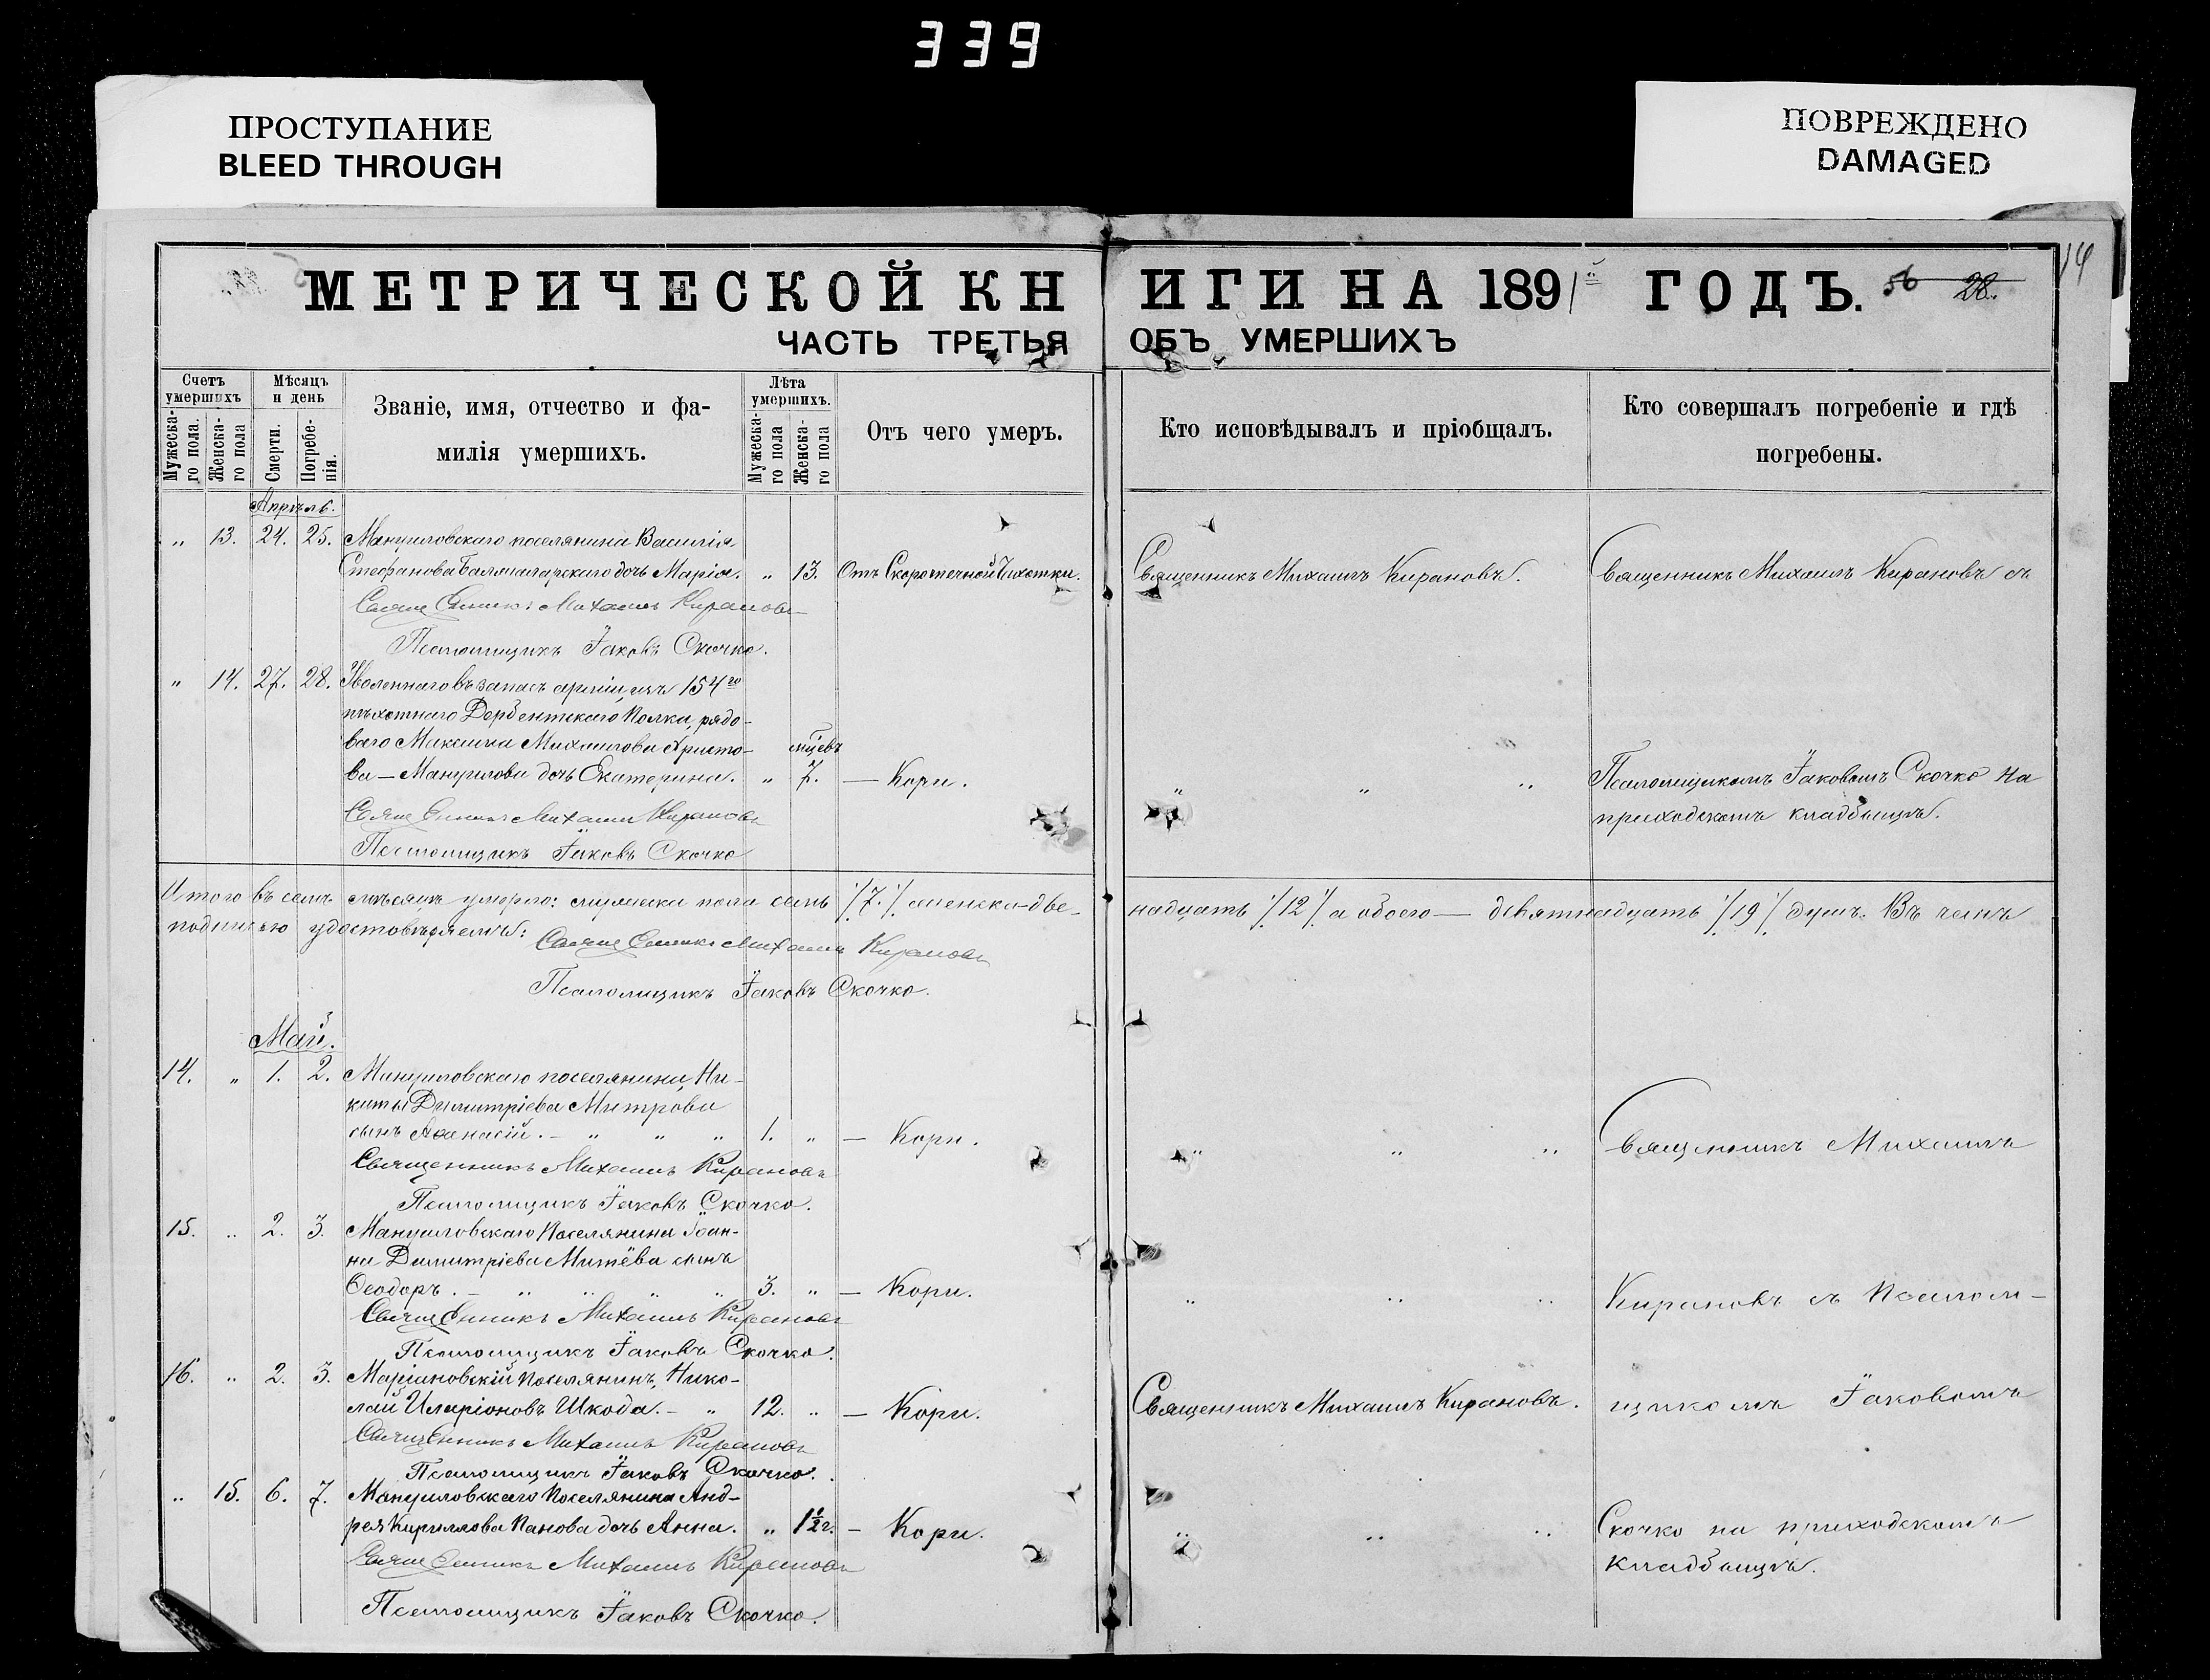 339
ПРОСТУПАНИЕ
BLEED THROUGH
ПОВРЕЖДЕНО
DAMAGED
МЕТРИЧЕСКОЙ КНИГИ НА 1891й ГОДЪ.
56 28.
14
ЧАСТЬ ТРЕТЬЯ ОБЪ УМЕРШИХЪ
Счетъ умершихъ
Мужеска-го пола.
Женска-го пола
Мѣсяцъ и день
Смерти.
Погребе-нія.
Званіе, имя, отчество и фа-
милія умершихъ.
Лѣта умершихъ.
Мужеска-го пола
Женска-го пола
Отъ чего умеръ.
Кто исповѣдывалъ и пріобщалъ.
Кто совершалъ погребеніе и гдѣ
погребены.
Апрѣль.
" 13. 24. 25. Мануиловскаго поселянина Василія
Стефанова Балмагларскаго дочь Марія. " 13. Отъ Скоротечной Чахотки. Священникъ Михаилъ Кирановъ. Священникъ Михаилъ Кирановъ съ
Священникъ Михаилъ Кирановъ
Псаломщикъ Іаковъ Скочко.
" 14. 27. 28. Уволеннаго въ запасъ арміи, изъ 154го
пѣхотнаго Дербентскаго Полка, рядо-
ваго Максима Михаилова Христо- мцевъ
ва-Мануилова дочь Екатерина. " 7. — Кори. " " " Псаломщикомъ Іаковомъ Скочко на
приходскомъ кладбищѣ.
Священникъ Михаилъ Кирановъ
Псаломщикъ Іаковъ Скочко
Итого въ семъ мѣсяцѣ умерло: мужеска пола семь /7./ женска-две-надцать /12/ а обоего — девятнадцать /19/ душъ. Въ чемъ
подписью удостовѣряемъ: Священникъ Михаилъ Кирановъ
Псаломщикъ Іаковъ Скочко.
Май.
14. " 1. 2. Мануиловскаго поселянина, Ни-
киты Димитріева Митрова
сынъ Аѳанасій. — " " " 1. " — Кори. " " " Священникъ Михаилъ
Священникъ Михаилъ Кирановъ
Псаломщикъ Іаковъ Скочко.
15. " 2. 3. Мануиловскаго Поселянина Іоан-
на Димитріева Митёва сынъ
Ѳеодоръ. — " " " " 3. " — Кори. " " " Кирановъ съ Псалом-
Священникъ Михаилъ Кирановъ
Псаломщикъ Іаковъ Скочко.
16. " 2. 3. Маріановскій Поселянинъ, Нико-
лай Иларіоновъ Шкода. — " 12. " — Кори. Священникъ Михаилъ Кирановъ. щикомъ Іаковомъ
Священникъ Михаилъ Кирановъ
Псаломщикъ Іаковъ Скочко.
" 15. 6. 7. Мануиловскаго Поселянина Анд-
рея Кириллова Панова дочь Анна. " 1½г. — Кори. " " " Скочко на приходскомъ
кладбищѣ.
Священникъ Михаилъ Кирановъ
Псаломщикъ Іаковъ Скочко.